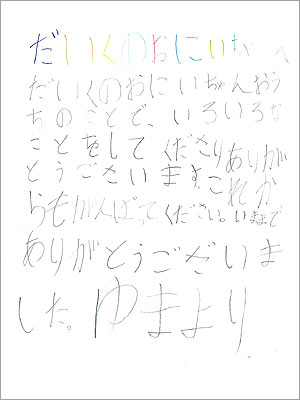 だいくのおにいちゃんへ
だいくのおにいちゃんおう
ちのことで、いろいろな
ことをしてくださりありが
とうございます。これか
らもがんばってください。いままで
ありがとうございま
した。ゆまより